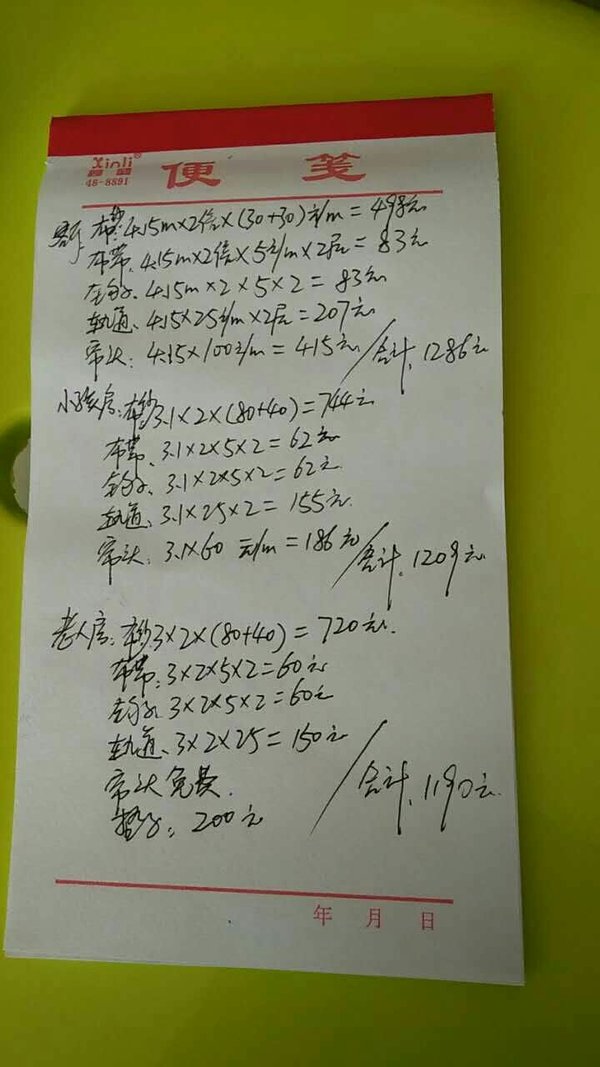 Xinli®
信笺
46-8891
便 笺
客厅 布纱:4.15m×2倍×(30+30)元/m=498元
布带、4.15m×2倍×5元/m×2层=83元
4.15m×2×5×2=83元
轨道、4.15×25元/m×2层=207元
帘头:4.15×100元/m=415元 / 合计、1286元
小孩房:布纱3.1×2×(80+40)=744元
布带、3.1×2×5×2=62元
3.1×2×5×2=62元
轨道、3.1×25×2=155元
帘头、3.1×60元/m=186元 / 合计、1209元
老人房:布纱3×2×(80+40)=720元.
布带:3×2×5×2=60元
3×2×5×2=60元
轨道、3×2×25=150元
帘头免费.
垫子:200元 / 合计、1190元.
年 月 日